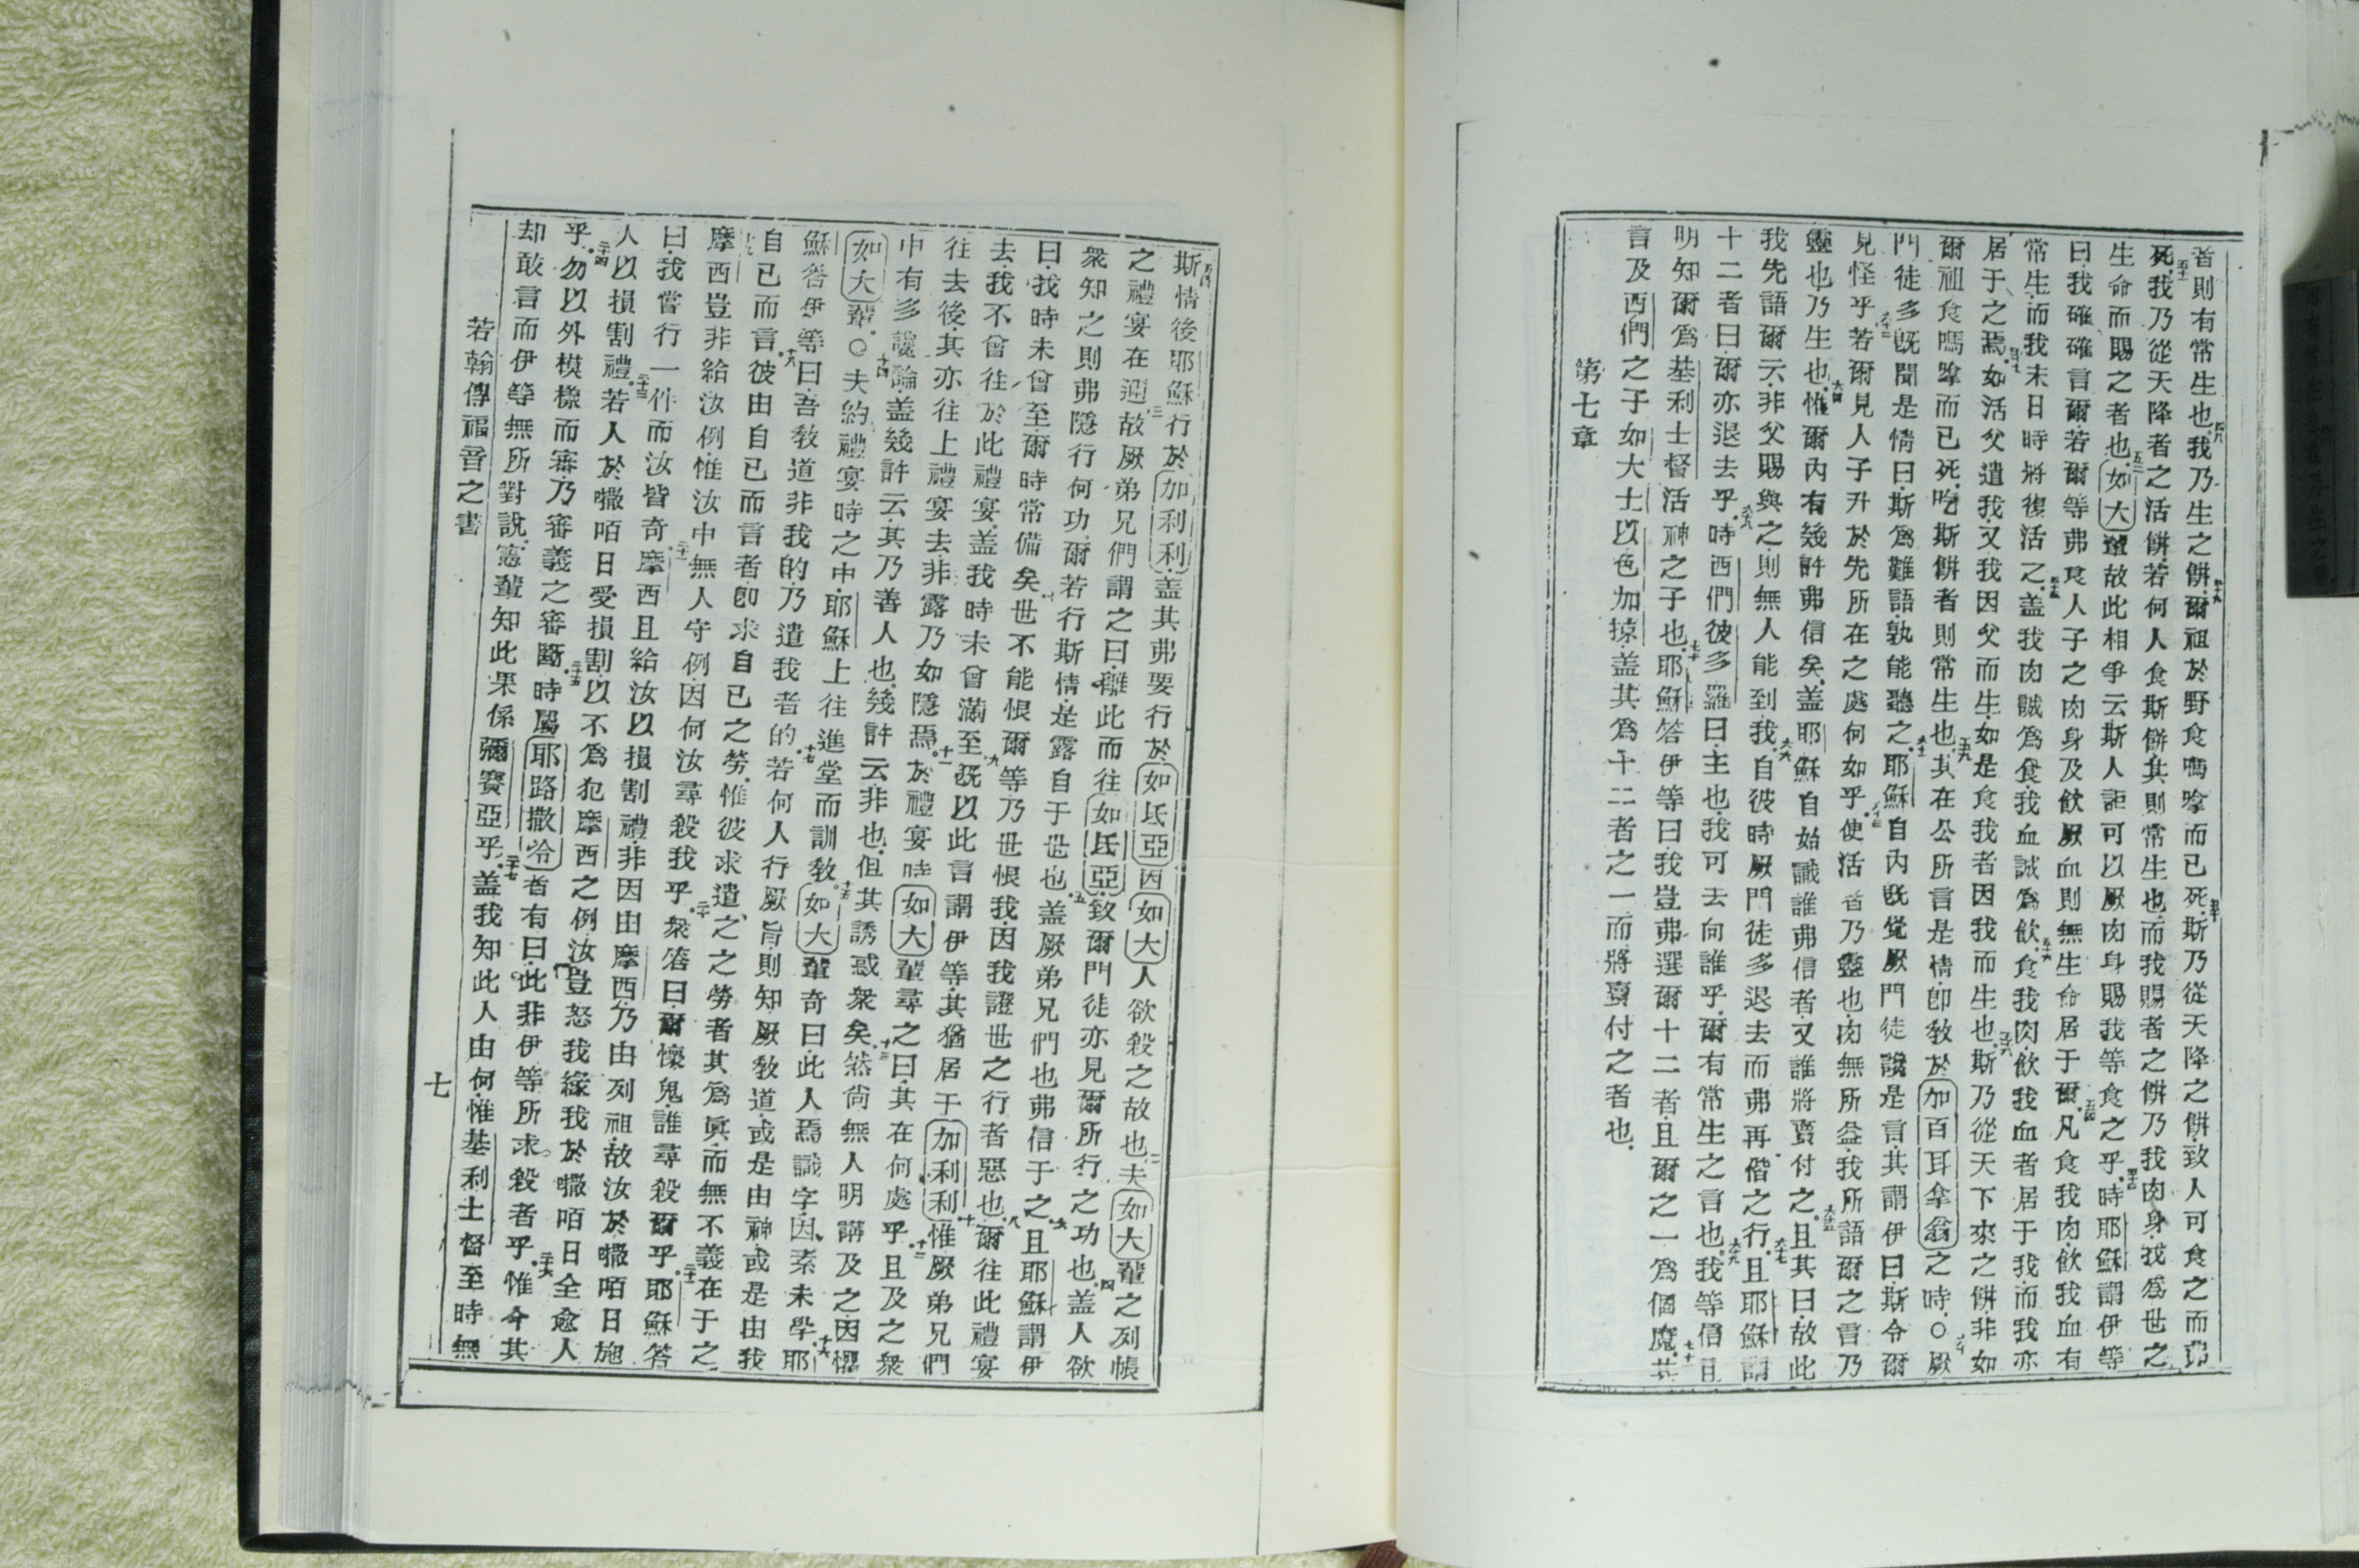 者則有常生也我乃生之餅爾祖於野食嗎嗱而已死斯乃從天降之餅致人可食之而弗
死我乃從天降者之活餅若何人食斯餅其則常生也而我賜者之餅乃我肉身我爲世之
生命而賜之者也如大輩故此相爭云斯人詎可以厥肉身賜我等食之乎時耶穌謂伊等
曰我確確言爾若爾等弗食人子之肉身及飲厥血則無生命居于爾凡食我肉飲我血有
常生而我末日時將復活之蓋我肉誠爲食我血誠爲飲食我肉飲我血者居于我而我亦
居于之焉如活父遣我又我因父而生如是食我者因我而生也斯乃從天下來之餅非如
爾祖食嗎嗱而已死吃斯餅者則常生也其在公所言是情卽敎於加百耳拿翁之時○厥
門徒多旣聞是情曰斯爲難語孰能聽之耶穌自內旣覺厥門徒讒是言其謂伊曰斯令爾
見怪乎若爾見人子升於先所在之處何如乎使活者乃靈也肉無所益我所語爾之言乃
靈也乃生也惟爾內有幾許弗信矣蓋耶穌自始識誰弗信者又誰將賣付之且其曰故此
我先語爾云非父賜與之則無人能到我自彼時厥門徒多退去而弗再偕之行且耶穌謂
十二者曰爾亦退去乎時西們彼多羅曰主也我可去向誰乎爾有常生之言也我等信且
明知爾爲基利士督活神之子也耶穌答伊等曰我豈弗選爾十二者且爾之一爲個魔其
言及西們之子如大士以色加掠蓋其爲十二者之一而將賣付之者也
第七章
斯情後耶穌行於加利利蓋其弗要行於如氐亞因如大人欲殺之故也夫如大輩之列帳
之禮宴在迎故厥弟兄們謂之曰離此而往如氐亞致爾門徒亦見爾所行之功也蓋人欲
衆知之則弗隱行何功爾若行斯情是露自于世也蓋厥弟兄們也弗信于之且耶穌謂伊
曰我時未曾至爾時常備矣世不能恨爾等乃世恨我因我證世之行者惡也爾往此禮宴
去我不曾往於此禮宴蓋我時未曾滿至旣以此言謂伊等其猶居于加利利惟厥弟兄們
往去後其亦往上禮宴去非露乃如隱焉於禮宴時如大輩尋之曰其在何處乎且及之衆
中有多讒論蓋幾許云其乃善人也幾許云非也但其誘惑衆矣然尙無人明講及之因懼
如大輩○夫約禮宴時之中耶穌上往進堂而訓敎如大輩奇曰此人焉識字因素未學耶
穌答伊等曰吾敎道非我的乃遣我者的若何人行厥旨則知厥敎道或是由神或是由我
自已而言彼由自已而言者卽求自已之勞惟彼求遣之之勞者其爲眞而無不義在于之
摩西豈非給汝例惟汝中無人守例因何汝尋殺我乎衆答曰爾懷鬼誰尋殺爾乎耶穌答
曰我嘗行一件而汝皆奇摩西且給汝以損割禮非因由摩西乃由列祖故汝於㘔咟日施
人以損割禮若人於㘔咟日受損割以不爲犯摩西之例汝豈怒我緣我於㘔咟日全愈人
乎勿以外模樣而審乃審義之審斷時屬耶路撒冷者有曰此非伊等所求殺者乎惟今其
却敢言而伊等無所對說憲輩知此果係彌賽亞乎蓋我知此人由何惟基利士督至時無
若翰傳福音之書
七